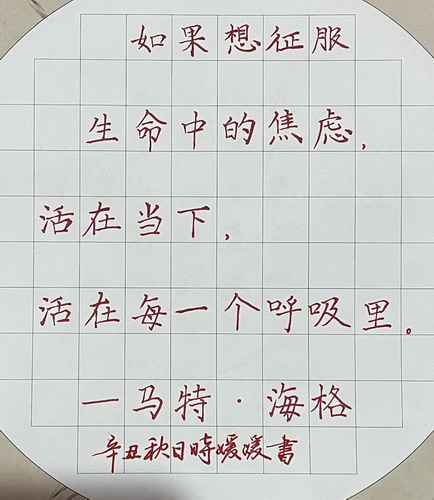 如果想征服
生命中的焦虑,
活在当下,
活在每一个呼吸里。
一马特·海格
辛丑秋日時媛媛書